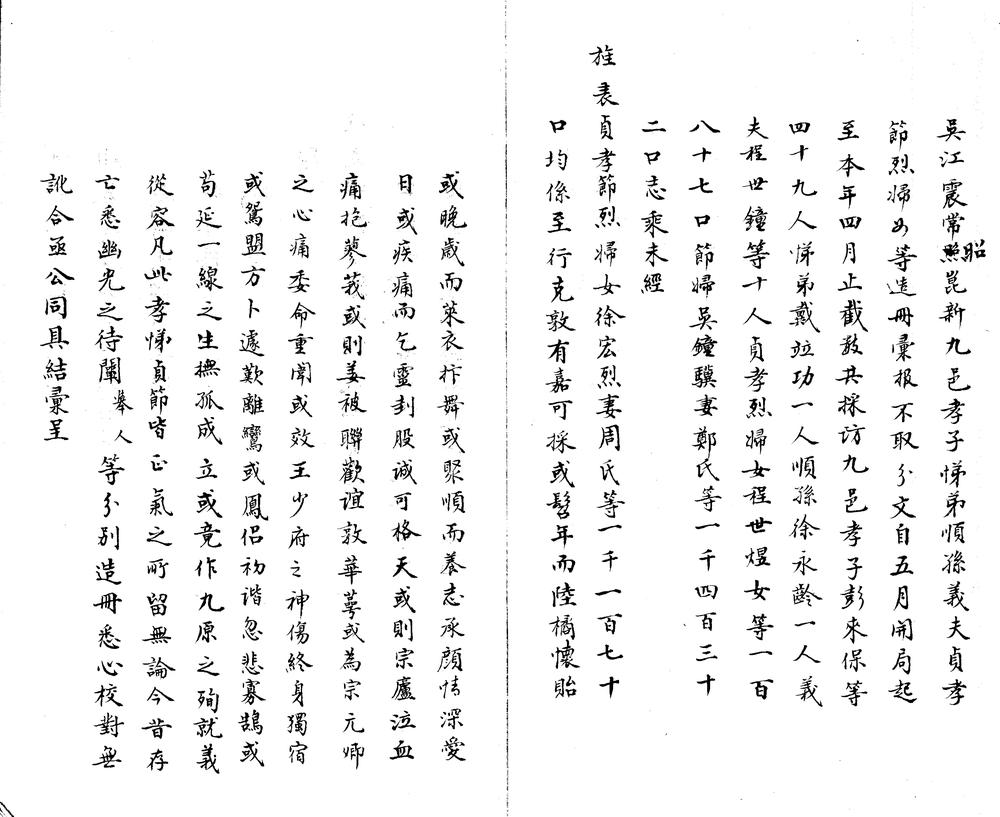 吳江震常昭崑新九邑孝子悌弟順孫義夫貞孝
節烈婦女等造冊彙报不取分文自五月開局起
至本年四月止截数共採訪九邑孝子彭來保等
四十九人悌弟戴竝功一人順孫徐永齡一人義
夫程世鐘等十人貞孝烈婦女程世煜女等一百
八十七口節婦吳鐘驥妻鄭氏等一千四百三十
二口志乘未經
旌表貞孝節烈婦女徐宏烈妻周氏等一千一百七十
口均係至行克敦有嘉可採或髫年而陸橘懷貽
或晚歲而萊衣抃舞或聚順而養志承顔情深愛
日或疾痛而乞靈刲股誠可格天或則宗廬泣血
痛抱蓼莪或則姜被聯歡誼敦華萼或為宗元卿
之心痛委命重闈或效王少府之神傷終身獨宿
或鴛盟方卜遽歎離鸞或鳳侶初谐忽悲寡鵠或
苟延一線之生撫孤成立或竟作九原之殉就義
從容凡此孝悌貞節皆正氣之所留無論今昔存
亡悉幽光之待闡舉人等分别造冊悉心校對無
訛合亟公同具結彙呈